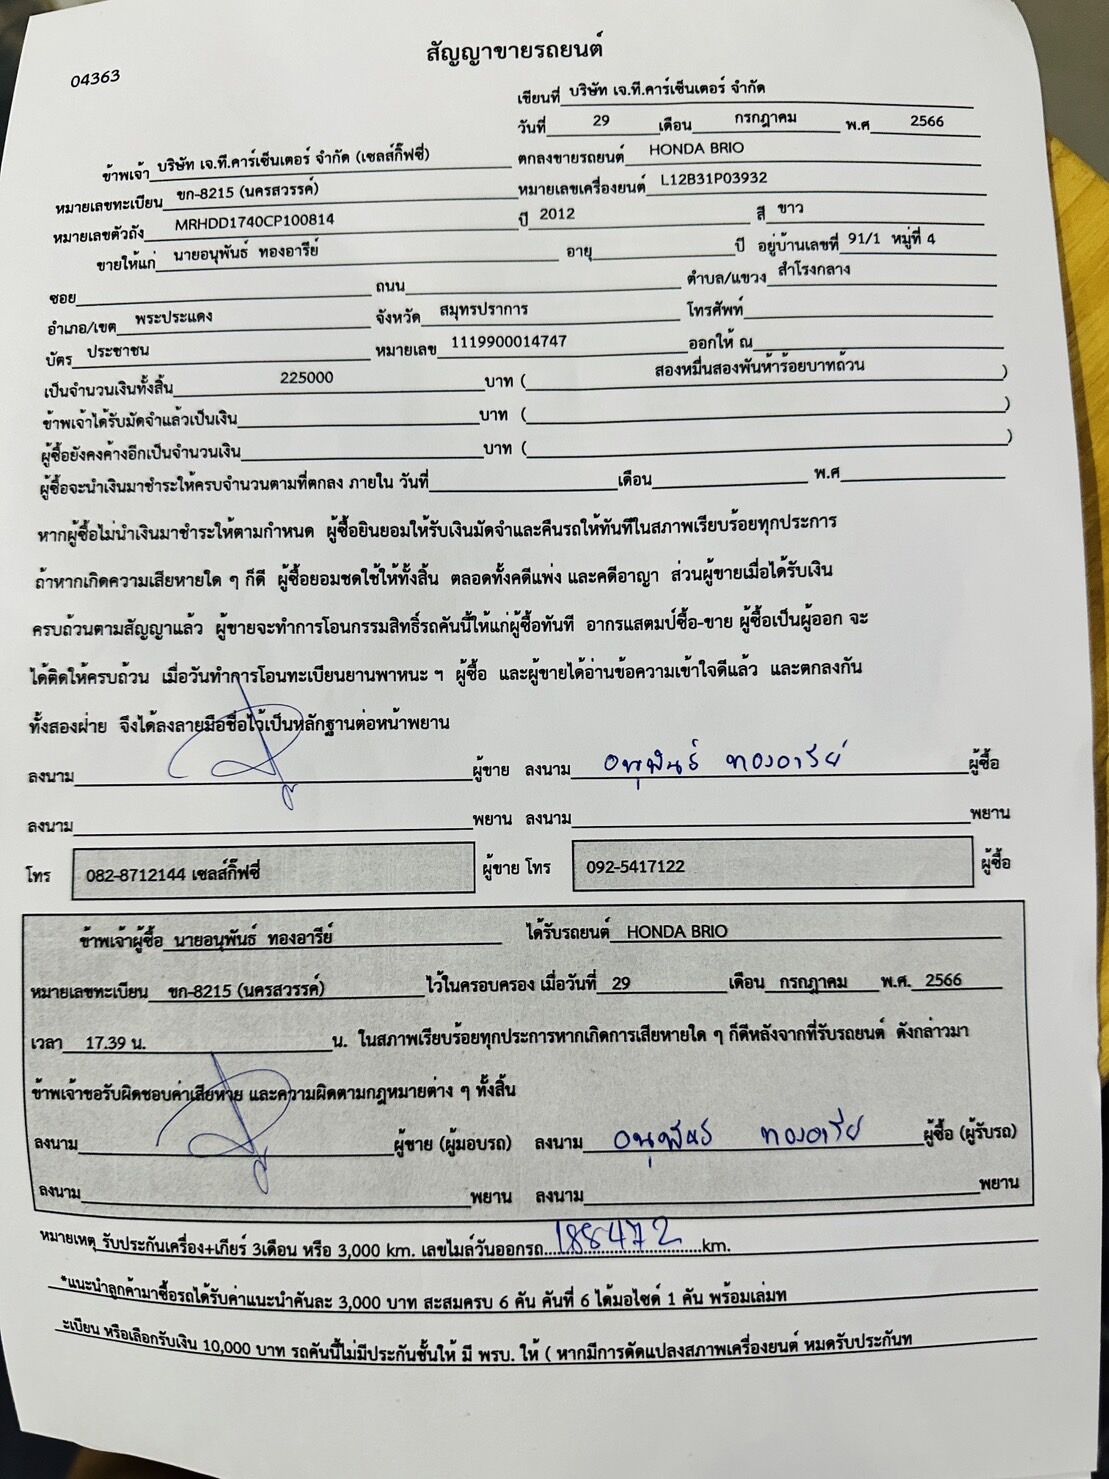 สัญญาขายรถยนต์
04363
เขียนที่ บริษัท เจ.ที.คาร์เซ็นเตอร์ จำกัด
วันที่ 29 เดือน กรกฎาคม พ.ศ 2566
ข้าพเจ้า บริษัท เจ.ที.คาร์เซ็นเตอร์ จำกัด (เซลส์กิ๊ฟซี่) ตกลงขายรถยนต์ HONDA BRIO
หมายเลขทะเบียน ขก-8215 (นครสวรรค์) หมายเลขเครื่องยนต์ L12B31P03932
หมายเลขตัวถัง MRHDD1740CP100814 ปี 2012 สี ขาว
ขายให้แก่ นายอนุพันธ์ ทองอารีย์ อายุ ปี อยู่บ้านเลขที่ 91/1 หมู่ที่ 4
ซอย ถนน ตำบล/แขวง สำโรงกลาง
อำเภอ/เขต พระประแดง จังหวัด สมุทรปราการ โทรศัพท์
บัตร ประชาชน หมายเลข 1119900014747 ออกให้ ณ
เป็นจำนวนเงินทั้งสิ้น 225000 บาท ( สองหมื่นสองพันห้าร้อยบาทถ้วน )
ข้าพเจ้าได้รับมัดจำแล้วเป็นเงิน บาท ( )
ผู้ซื้อยังคงค้างอีกเป็นจำนวนเงิน บาท ( )
ผู้ซื้อจะนำเงินมาชำระให้ครบจำนวนตามที่ตกลง ภายใน วันที่ เดือน พ.ศ
หากผู้ซื้อไม่นำเงินมาชำระให้ตามกำหนด ผู้ซื้อยินยอมให้รับเงินมัดจำและคืนรถให้ทันทีในสภาพเรียบร้อยทุกประการ
ถ้าหากเกิดความเสียหายใด ๆ ก็ดี ผู้ซื้อยอมชดใช้ให้ทั้งสิ้น ตลอดทั้งคดีแพ่ง และคดีอาญา ส่วนผู้ขายเมื่อได้รับเงิน
ครบถ้วนตามสัญญาแล้ว ผู้ขายจะทำการโอนกรรมสิทธิ์รถคันนี้ให้แก่ผู้ซื้อทันที อากรแสตมป์ซื้อ-ขาย ผู้ซื้อเป็นผู้ออก จะ
ได้ติดให้ครบถ้วน เมื่อวันทำการโอนทะเบียนยานพาหนะ ฯ ผู้ซื้อ และผู้ขายได้อ่านข้อความเข้าใจดีแล้ว และตกลงกัน
ทั้งสองฝ่าย จึงได้ลงลายมือชื่อไว้เป็นหลักฐานต่อหน้าพยาน
ลงนาม ผู้ขาย ลงนาม อนุพันธ์ ทองอารีย์ ผู้ซื้อ
ลงนาม พยาน ลงนาม พยาน
โทร 082-8712144 เซลส์กิ๊ฟซี่ ผู้ขาย โทร 092-5417122 ผู้ซื้อ
ข้าพเจ้าผู้ซื้อ นายอนุพันธ์ ทองอารีย์ ได้รับรถยนต์ HONDA BRIO
หมายเลขทะเบียน ขก-8215 (นครสวรรค์) ไว้ในครอบครอง เมื่อวันที่ 29 เดือน กรกฎาคม พ.ศ. 2566
เวลา 17.39 น. น. ในสภาพเรียบร้อยทุกประการหากเกิดการเสียหายใด ๆ ก็ดีหลังจากที่รับรถยนต์ ดังกล่าวมา
ข้าพเจ้าขอรับผิดชอบค่าเสียหาย และความผิดตามกฎหมายต่าง ๆ ทั้งสิ้น
ลงนาม ผู้ขาย (ผู้มอบรถ) ลงนาม อนุพันธ์ ทองอารีย์ ผู้ซื้อ (ผู้รับรถ)
ลงนาม พยาน ลงนาม พยาน
หมายเหตุ รับประกันเครื่อง+เกียร์ 3เดือน หรือ 3,000 km. เลขไมล์วันออกรถ 188472 km.
*แนะนำลูกค้ามาซื้อรถได้รับค่าแนะนำคันละ 3,000 บาท สะสมครบ 6 คัน คันที่ 6 ได้มอไซด์ 1 คัน พร้อมเล่มท
ะเบียน หรือเลือกรับเงิน 10,000 บาท รถคันนี้ไม่มีประกันชั้นให้ มี พรบ. ให้ ( หากมีการดัดแปลงสภาพเครื่องยนต์ หมดรับประกันท